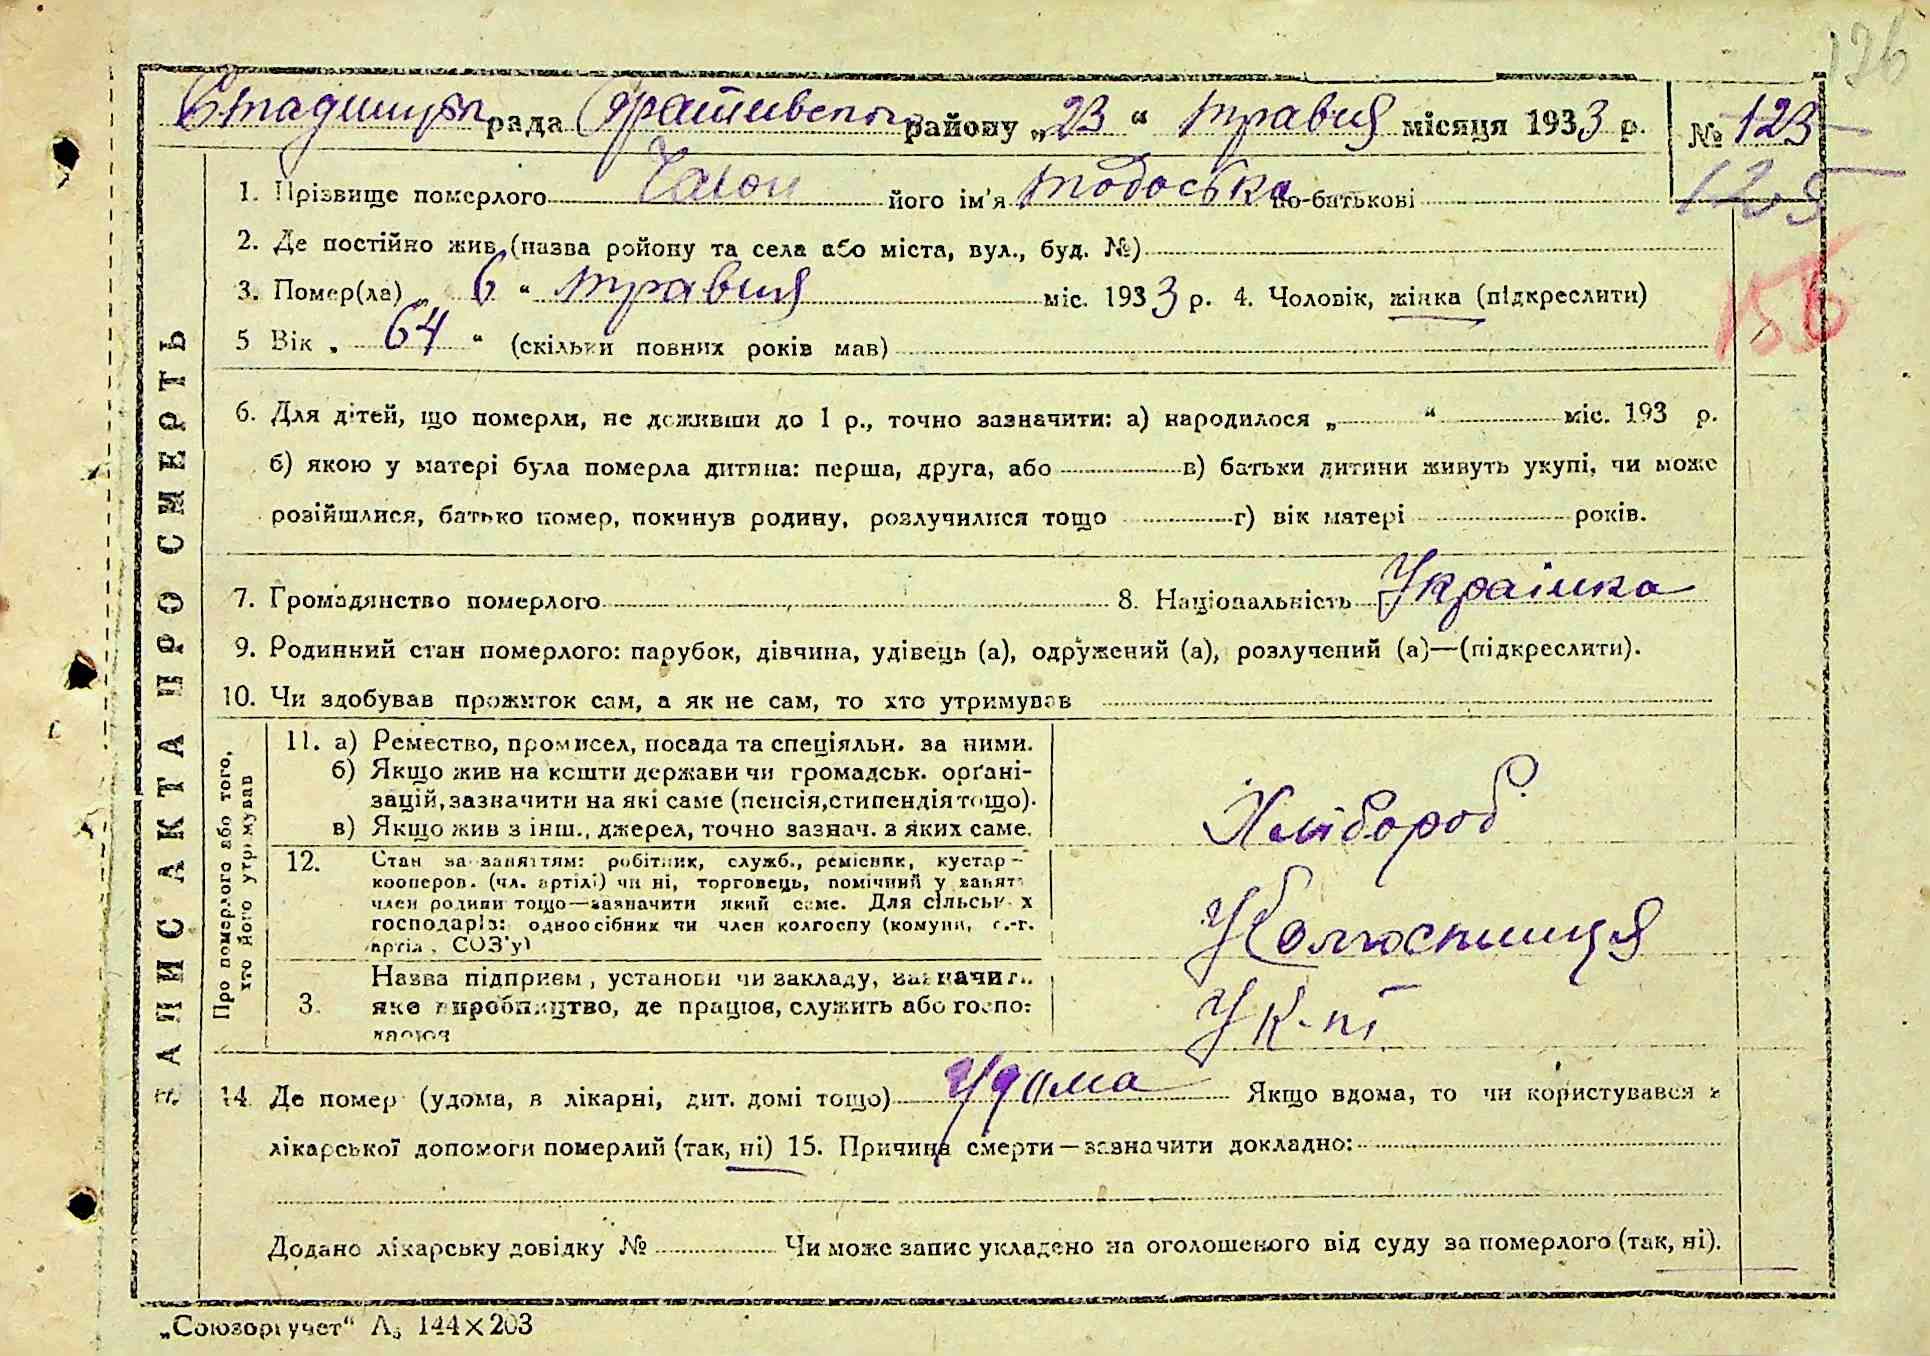 126
Стадищеп рада Фратівсько району „23 “ травня місяця 1933 р. № 123
125
1. Прізвище померлого Чаюн його ім'я тодоська по-батькові
2. Де постійно жив (назва ройону та села або міста, вул., буд. №)
156
3. Помер(ла) „ 6 “ травня міс. 1933 р. 4. Чоловік, жінка (підкреслити)
5 Вік „ 64 “ (скільки повних років мав)
6. Для дітей, що померли, не доживши до 1 р., точно зазначити: а) народилося „ “ міс. 193 р.
б) якою у матері була померла дитина: перша, друга, або в) батьки дитини живуть укупі, чи може
розійшлися, батько помер, покинув родину, розлучилися тощо г) вік матері років.
7. Громадянство померлого 8. Національність Українка
9. Родинний стан померлого: парубок, дівчина, удівець (а), одружений (а), розлучений (а)—(підкреслити).
10. Чи здобував прожиток сам, а як не сам, то хто утримував
ЗАПИС АКТА ПРО СМЕРТЬ
Про померлого або того,
хто його утримував
11. а) Ремество, промисел, посада та спеціяльн. за ними.
б) Якщо жив на кошти держави чи громадськ. орґані-
зацій, зазначити на які саме (пенсія, стипендія тощо).
в) Якщо жив з інш., джерел, точно зазнач. з яких саме.
Хлібороб
12. Стан за заняттям: робітник, служб., ремісник, кустар-
кооперов. (чл. артілі) чи ні, торговець, помічний у занят
член родини тощо—зазначити який саме. Для сільськ х
господарів: одноосібник чи член колгоспу (комуни, с.-г.
артіл , СОЗ'у)
У Колгоспниця
Назва підприєм , установи чи закладу, зазначит..
3. яке виробництво, де працює, служить або госпо-
дарює
У к-пі
14. Де помер (удома, в лікарні, дит. домі тощо) Удома Якщо вдома, то чи користувався з
лікарської допомоги померлий (так, ні) 15. Причина смерти—зазначити докладно:
Додано лікарську довідку № Чи може запис укладено на оголошеного від суду за померлого (так, ні).
„Союзоргучет“ А5 144×203